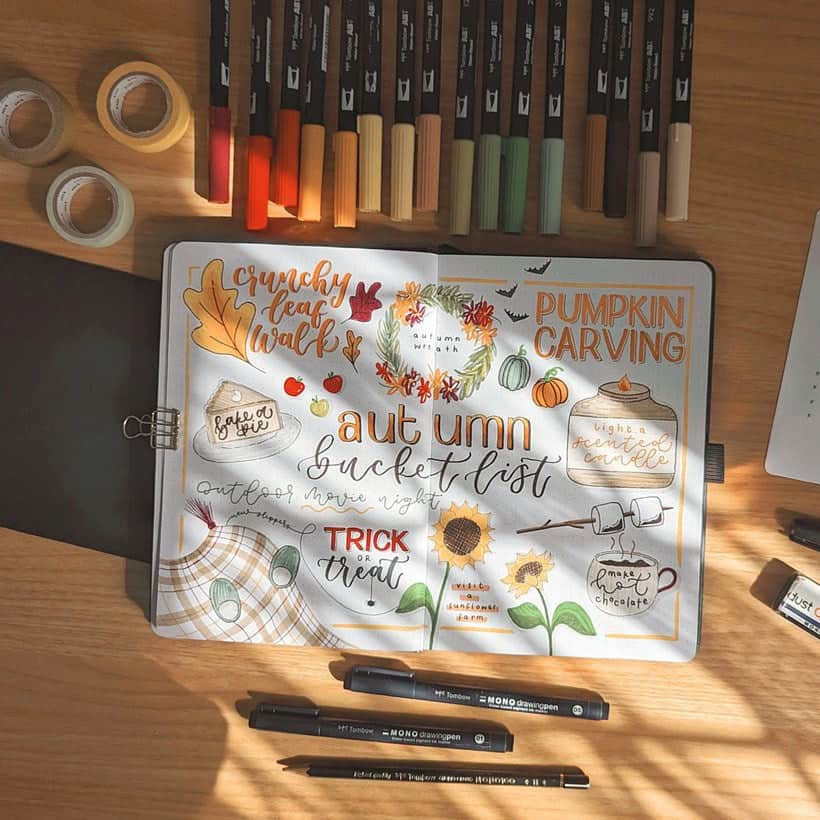 Tombow ABT
992
crunchy
leaf
walk
autumn
wreath
PUMPKIN
CARVING
bake a
pie
autumn
bucket list
light a
scented
candle
outdoor movie night
new slippers
TRICK
OR
treat
visit
a
sunflower
farm
make
hot
chocolate
Tombow MONO drawingpen 05
Tombow MONO drawingpen 01
Tombow